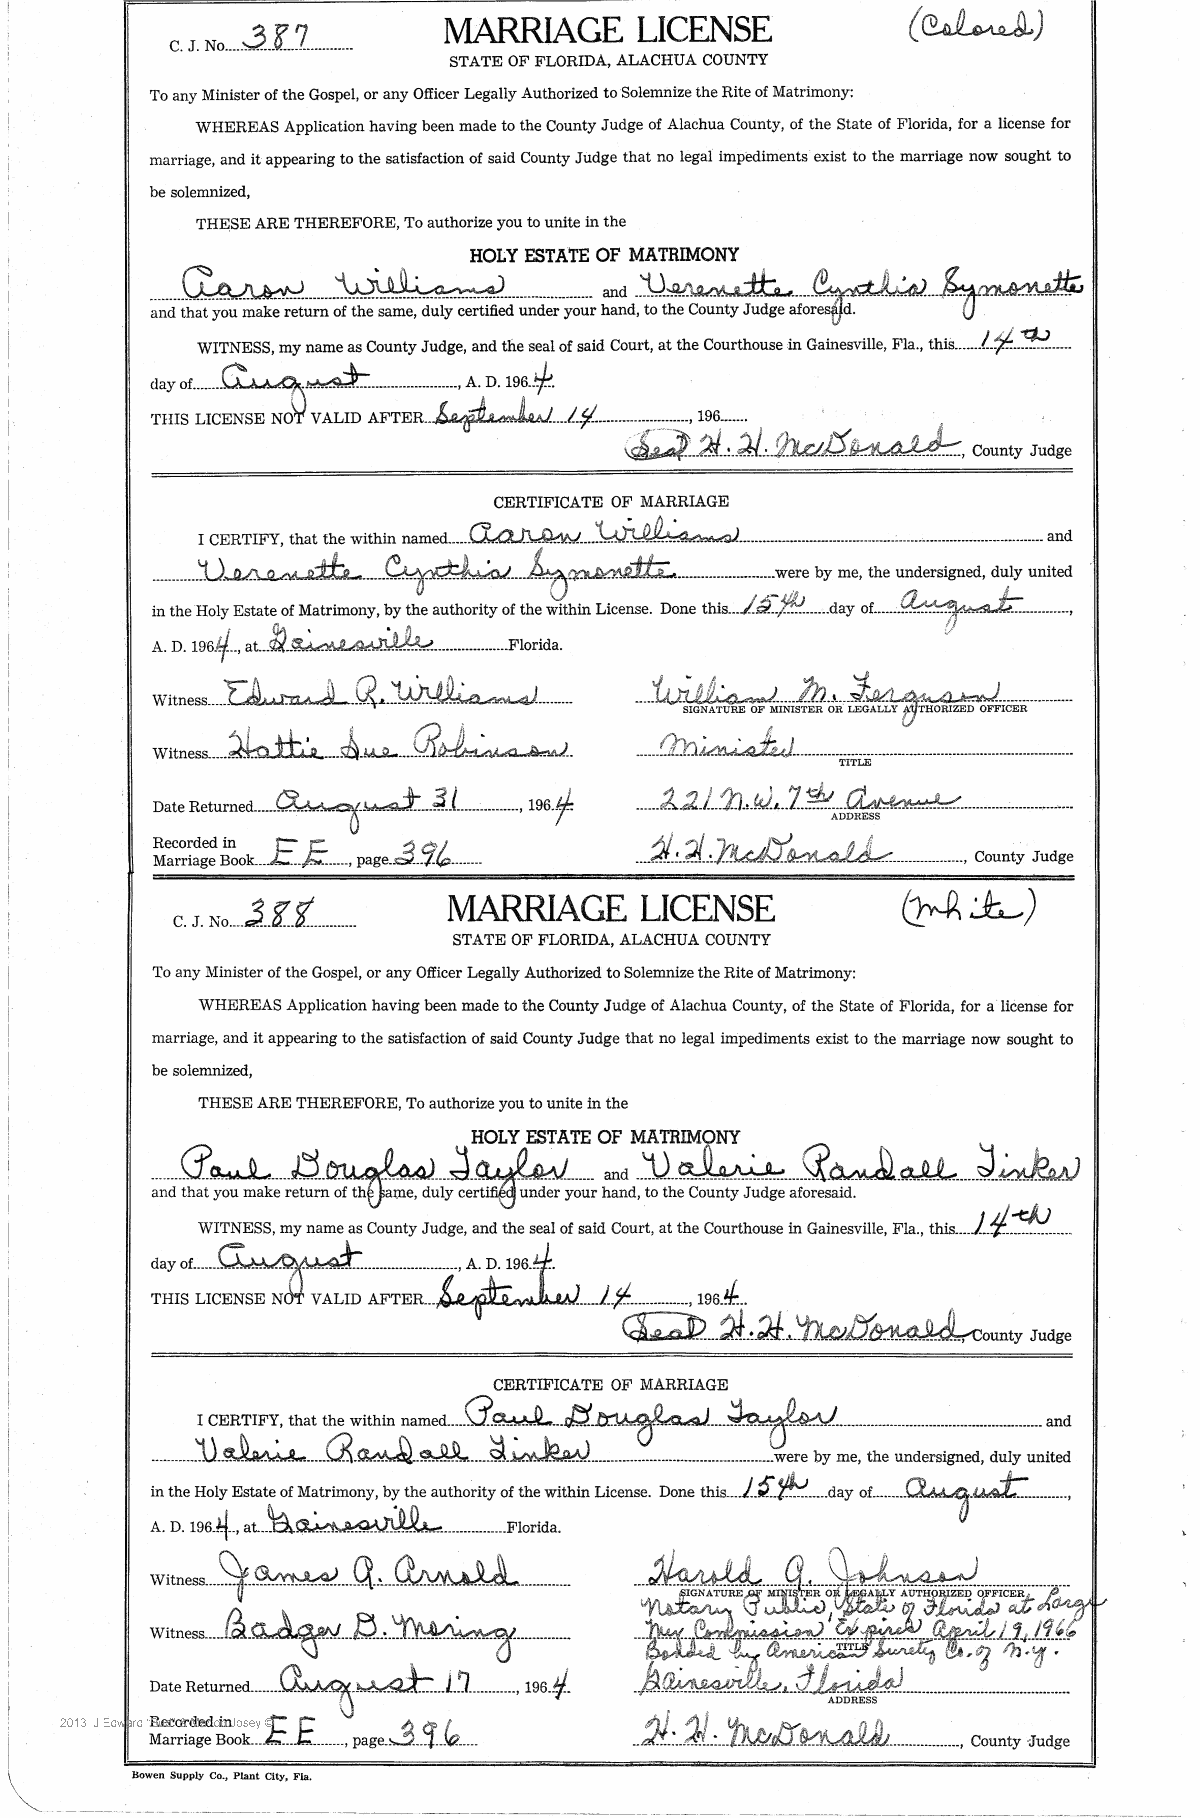 C. J. No. 387 MARRIAGE LICENSE (Colored)
STATE OF FLORIDA, ALACHUA COUNTY
To any Minister of the Gospel, or any Officer Legally Authorized to Solemnize the Rite of Matrimony:
WHEREAS Application having been made to the County Judge of Alachua County, of the State of Florida, for a license for
marriage, and it appearing to the satisfaction of said County Judge that no legal impediments exist to the marriage now sought to
be solemnized,
THESE ARE THEREFORE, To authorize you to unite in the
HOLY ESTATE OF MATRIMONY
Aaron Williams and Verenette Cynthia Symonette
and that you make return of the same, duly certified under your hand, to the County Judge aforesaid.
WITNESS, my name as County Judge, and the seal of said Court, at the Courthouse in Gainesville, Fla., this 14th
day of August, A. D. 1964.
THIS LICENSE NOT VALID AFTER September 14, 196
Seal H. H. McDonald, County Judge
CERTIFICATE OF MARRIAGE
I CERTIFY, that the within named Aaron Williams and
Verenette Cynthia Symonette were by me, the undersigned, duly united
in the Holy Estate of Matrimony, by the authority of the within License. Done this 15th day of August,
A. D. 1964, at Gainesville Florida.
Witness Edward R. Williams William M. Ferguson
SIGNATURE OF MINISTER OR LEGALLY AUTHORIZED OFFICER
Witness Hattie Sue Robinson Minister
TITLE
Date Returned August 31, 1964 221 N.W. 7th Avenue
ADDRESS
Recorded in
Marriage Book EE, page 396 H. H. McDonald, County Judge
C. J. No. 388 MARRIAGE LICENSE (White)
STATE OF FLORIDA, ALACHUA COUNTY
To any Minister of the Gospel, or any Officer Legally Authorized to Solemnize the Rite of Matrimony:
WHEREAS Application having been made to the County Judge of Alachua County, of the State of Florida, for a license for
marriage, and it appearing to the satisfaction of said County Judge that no legal impediments exist to the marriage now sought to
be solemnized,
THESE ARE THEREFORE, To authorize you to unite in the
HOLY ESTATE OF MATRIMONY
Paul Douglas Taylor and Valerie Randall Tinker
and that you make return of the same, duly certified under your hand, to the County Judge aforesaid.
WITNESS, my name as County Judge, and the seal of said Court, at the Courthouse in Gainesville, Fla., this 14th
day of August, A. D. 1964.
THIS LICENSE NOT VALID AFTER September 14, 1964
Seal H. H. McDonald, County Judge
CERTIFICATE OF MARRIAGE
I CERTIFY, that the within named Paul Douglas Taylor and
Valerie Randall Tinker were by me, the undersigned, duly united
in the Holy Estate of Matrimony, by the authority of the within License. Done this 15th day of August,
A. D. 1964, at Gainesville Florida.
Witness James A. Arnold Harold G. Johnson
SIGNATURE OF MINISTER OR LEGALLY AUTHORIZED OFFICER
Notary Public, State of Florida at Large
Witness Badger D. Mering My Commission Expires April 19, 1966
Bonded by American Surety Co. of N.Y.
TITLE
Date Returned August 17, 1964 Gainesville, Florida
ADDRESS
2013 J Edward Josey ©
Recorded in
Marriage Book EE, page 396 H. H. McDonald, County Judge
Bowen Supply Co., Plant City, Fla.